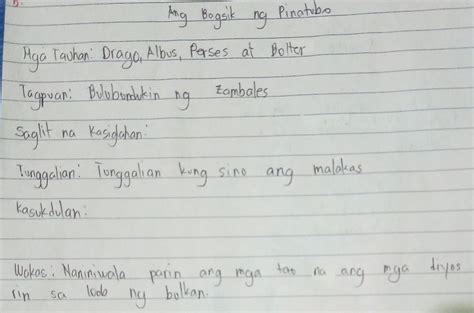 B.
Ang Bagsik ng Pinatubo
Mga Tauhan: Drago, Albus, Perses at Bolter
Tagpuan: Bulubundukin ng Zambales
Saglit na Kasiglahan:
Tunggalian: Tunggalian kung sino ang malakas
Kasukdulan:
Wakas: Naniniwala parin ang mga tao na ang mga diyos
rin sa lodo ng bulkan.